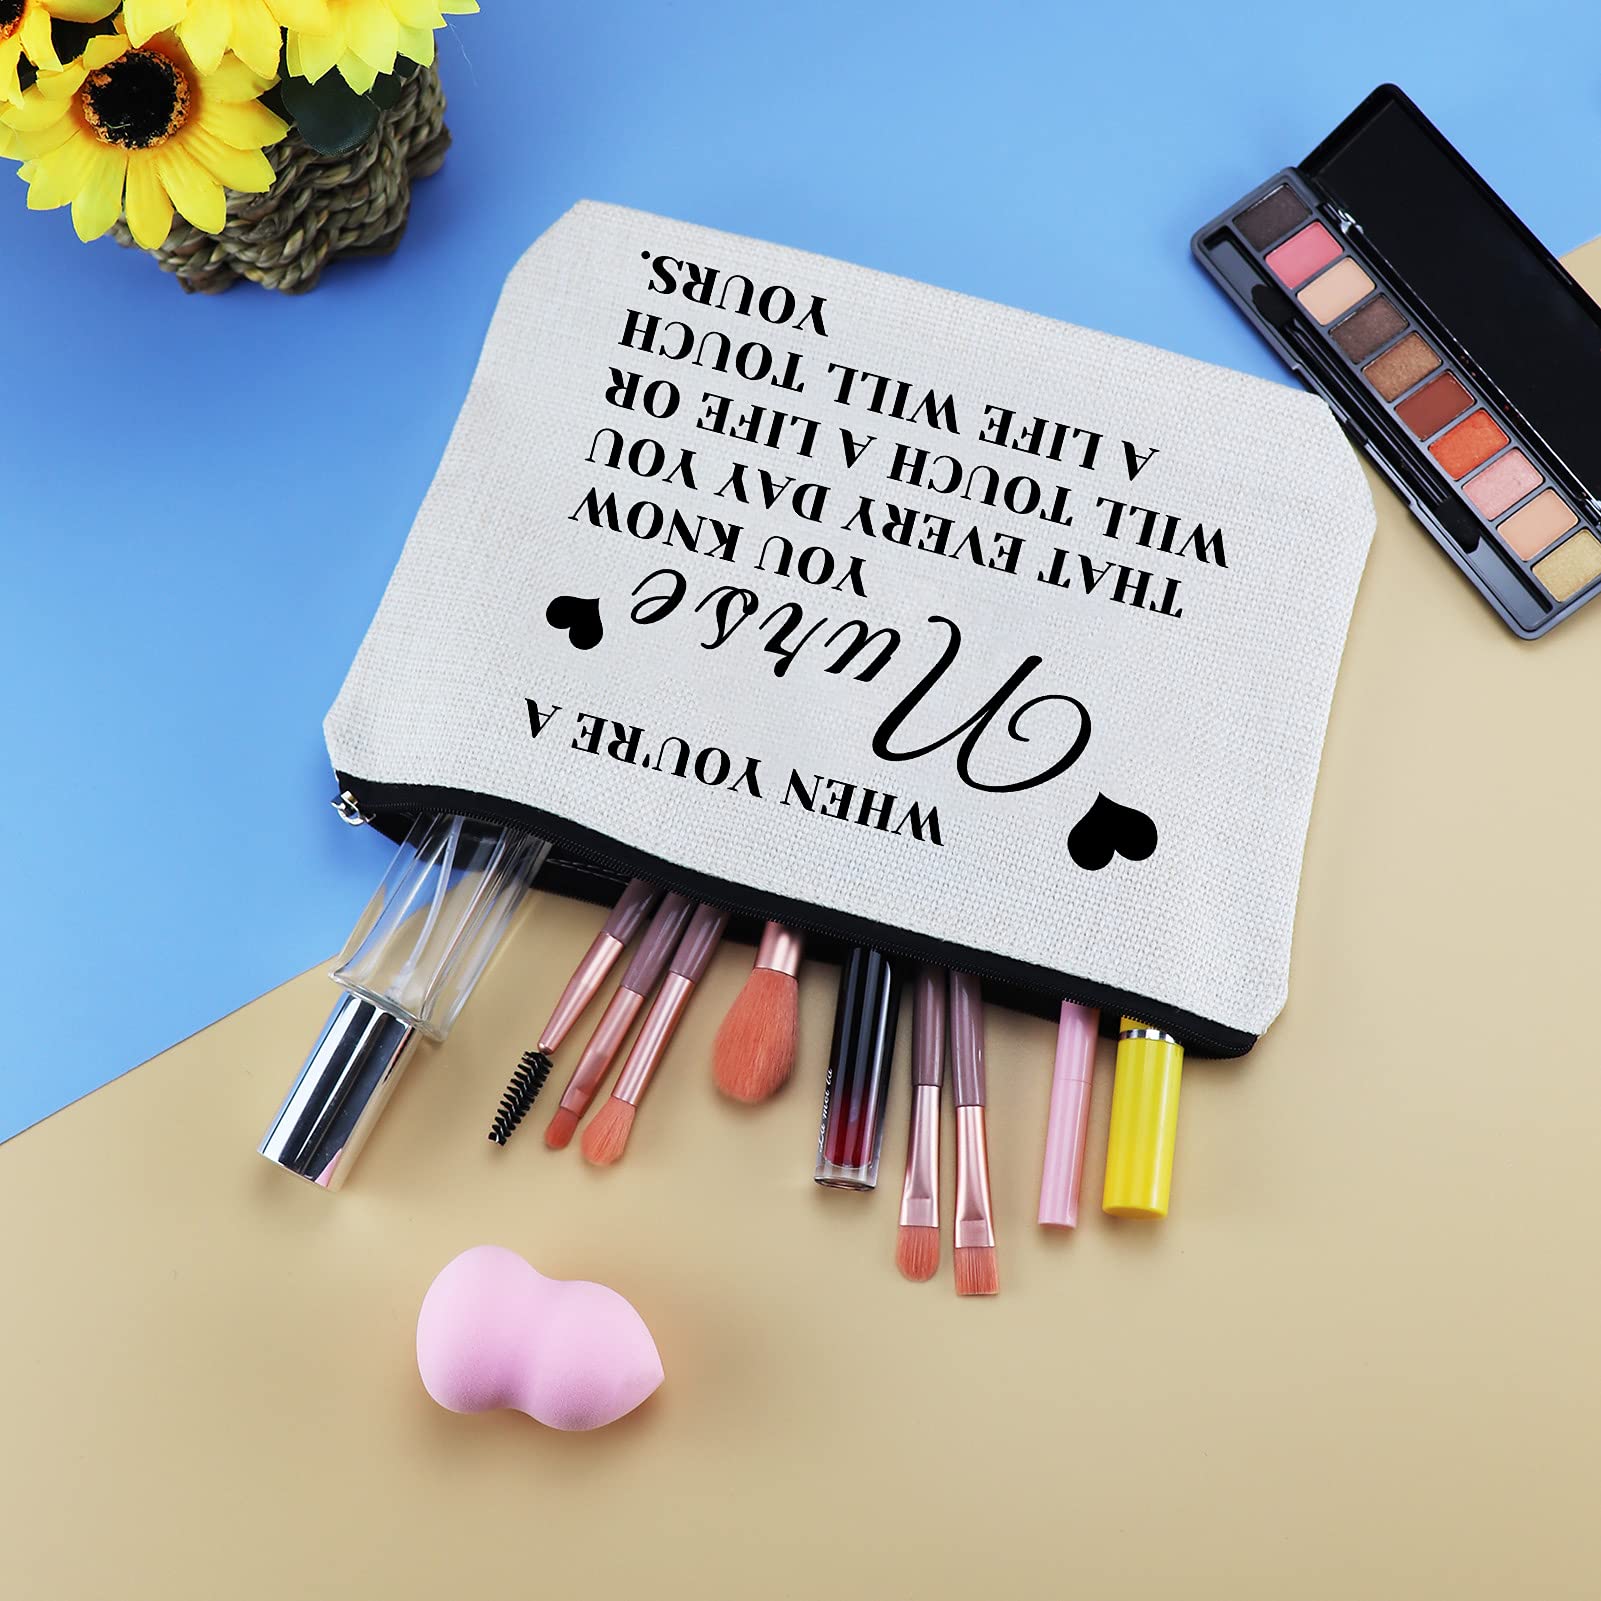 WHEN YOU'RE A
Nurse
YOU KNOW
THAT EVERY DAY YOU
WILL TOUCH A LIFE OR
A LIFE WILL TOUCH
YOURS.
La mei la